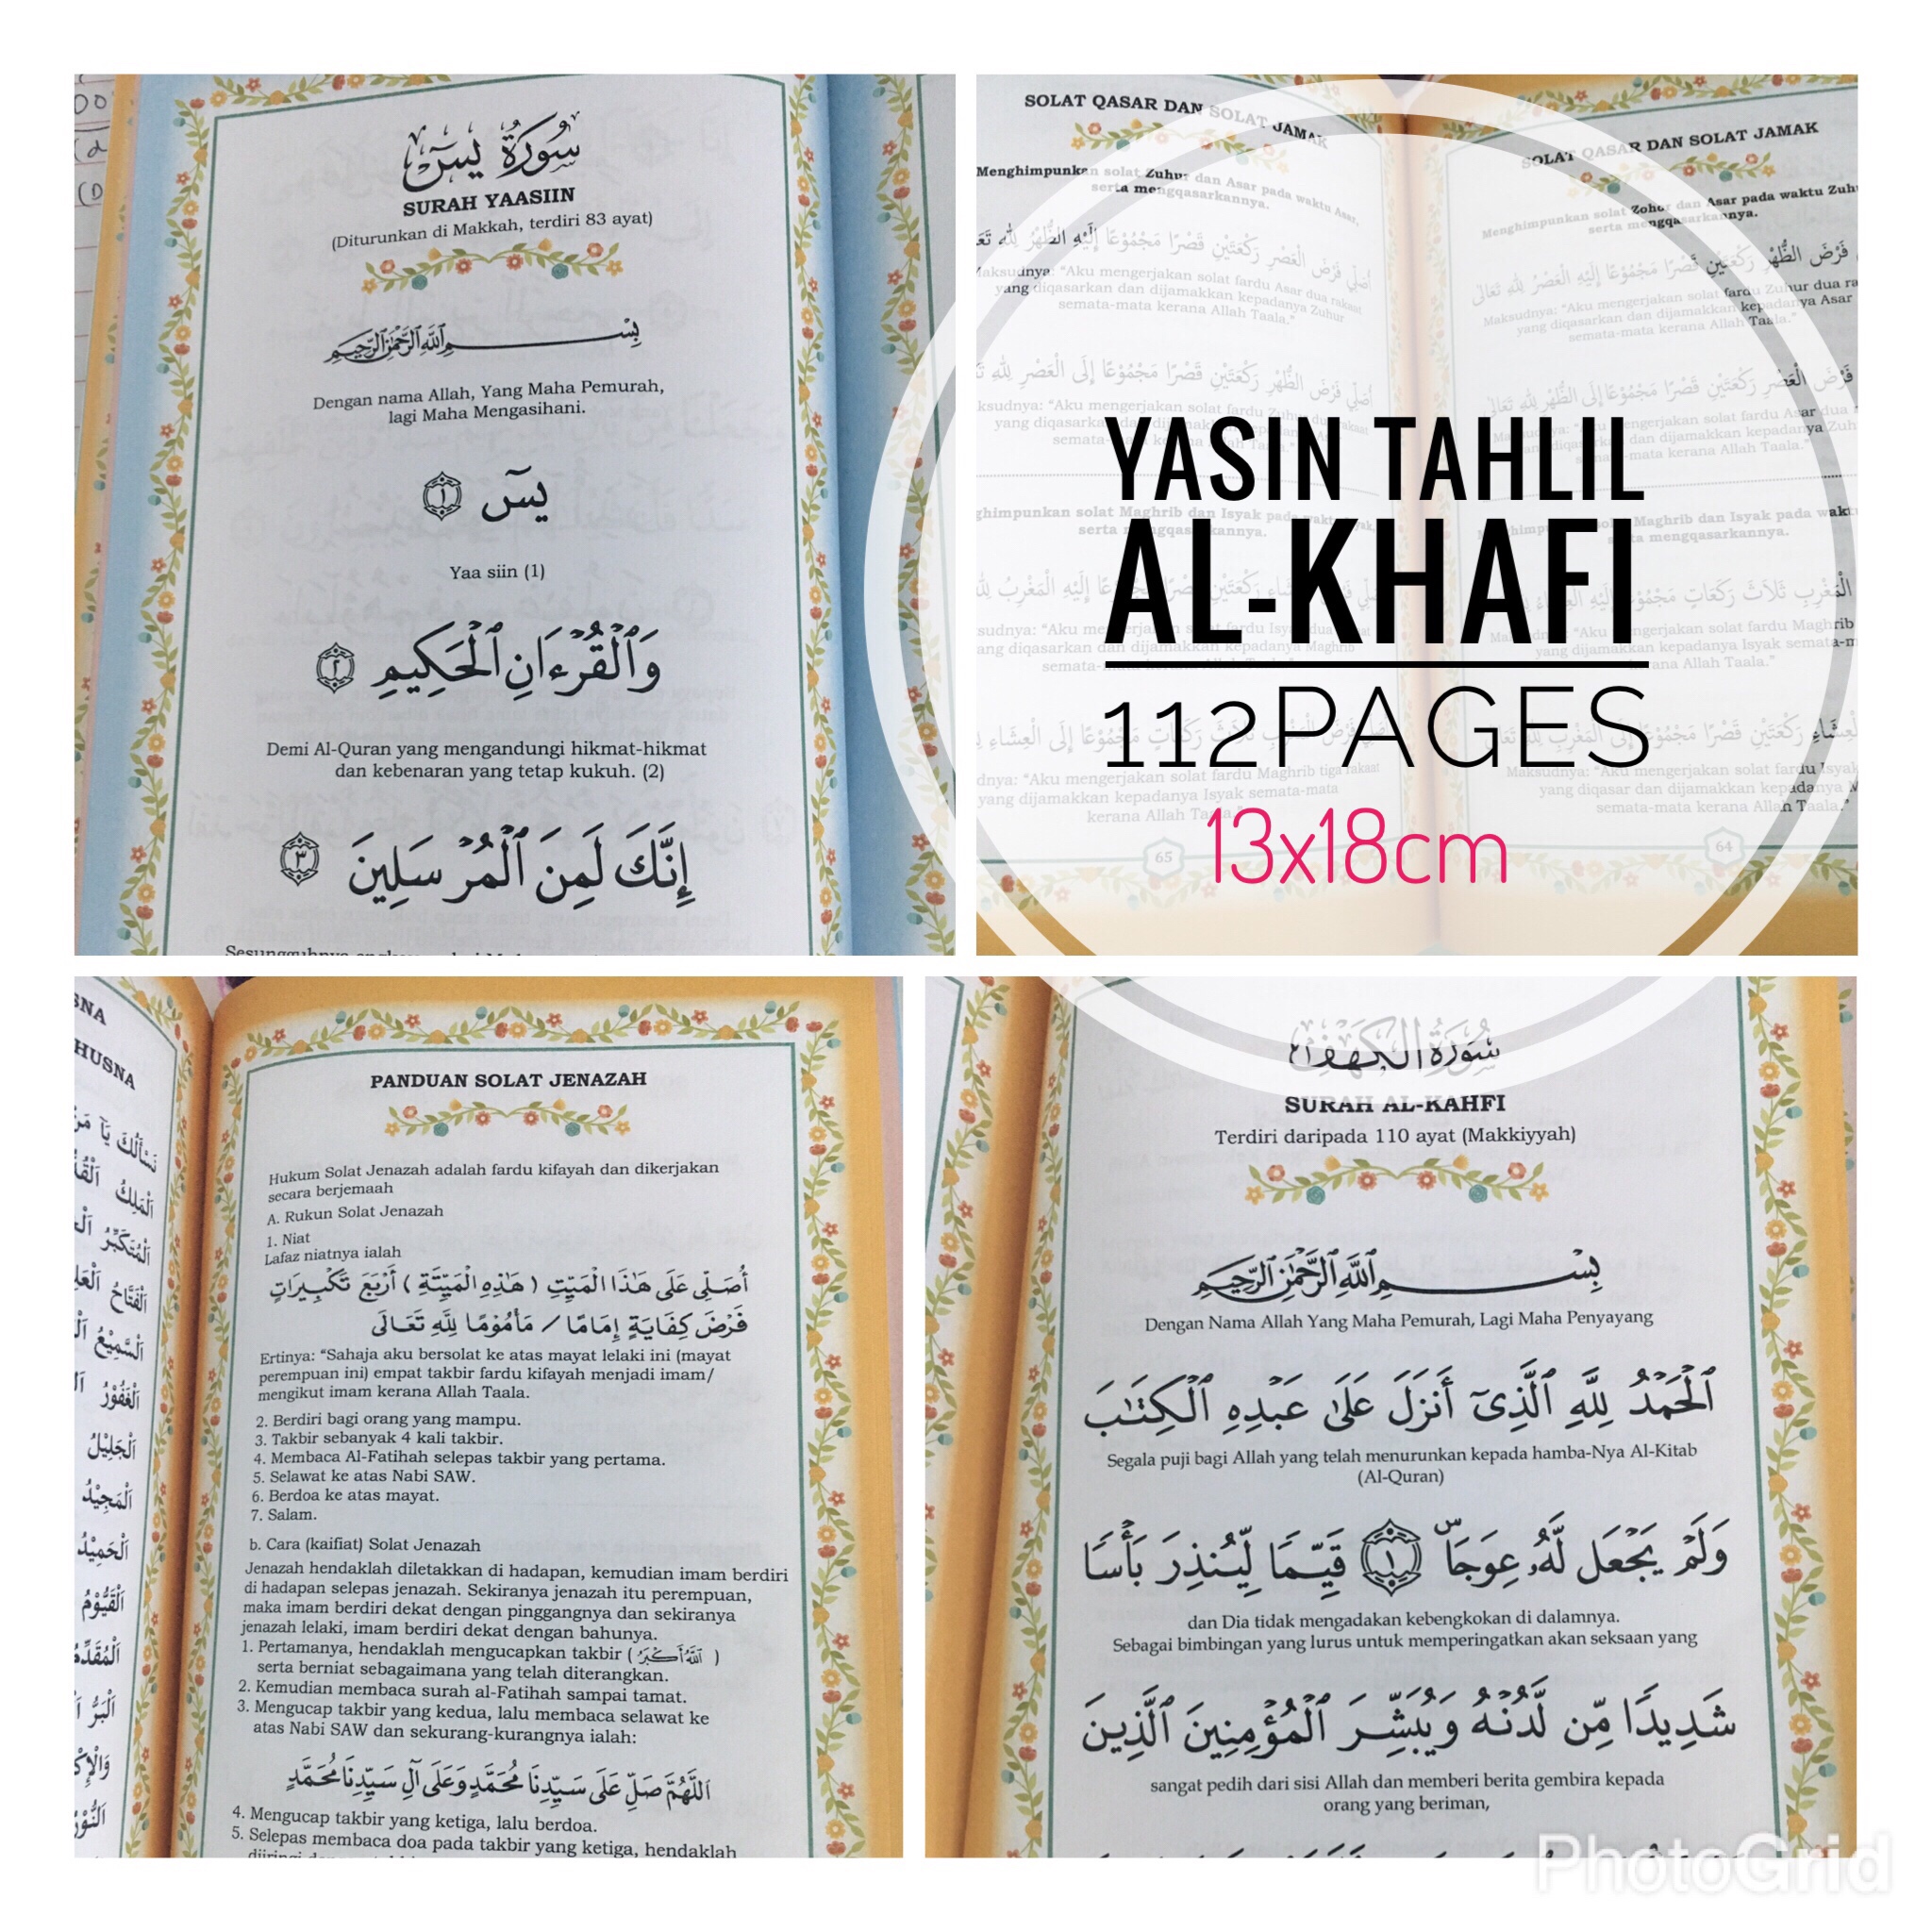 سُورَةُ يسٓ
SURAH YAASIIN
(Diturunkan di Makkah, terdiri 83 ayat)
بِسْمِ اللَّهِ الرَّحْمَٰنِ الرَّحِيمِ
Dengan nama Allah, Yang Maha Pemurah,
lagi Maha Mengasihani.
يسٓ ١
Yaa siin (1)
وَٱلْقُرْءَانِ ٱلْحَكِيمِ ٢
Demi Al-Quran yang mengandungi hikmat-hikmat
dan kebenaran yang tetap kukuh. (2)
إِنَّكَ لَمِنَ ٱلْمُرْسَلِينَ ٣
SOLAT QASAR DAN SOLAT JAMAK
Menghimpunkan solat Zuhur dan Asar pada waktu Asar,
serta mengqasarkannya.
أُصَلِّي فَرْضَ الْعَصْرِ رَكْعَتَيْنِ قَصْرًا مَجْمُوْعًا إِلَيْهِ الظُّهْرُ لِلَّهِ
Maksudnya: "Aku mengerjakan solat fardu Asar dua rakaat
yang diqasarkan dan dijamakkan kepadanya Zuhur
semata-mata kerana Allah Taala."
أُصَلِّي فَرْضَ الظُّهْرِ رَكْعَتَيْنِ قَصْرًا مَجْمُوْعًا إِلَى الْعَصْرِ لِلَّهِ
"Aku mengerjakan solat fardu Zuhur dua rakaat
semata-mata kerana Allah Taala."
Maghrib dan Isyak pada waktu Isyak,
serta mengqasarkannya.
"Aku mengerjakan solat fardu Isyak dua
yang diqasarkan dan dijamakkan kepadanya Maghrib
"Aku mengerjakan solat fardu Maghrib tiga rakaat
yang dijamakkan kepadanya Isyak semata-mata
kerana Allah Taala."
65
SOLAT QASAR DAN SOLAT JAMAK
Menghimpunkan solat Zohor dan Asar pada waktu Zuhur
serta mengqasarkannya.
فَرْضَ الظُّهْرِ رَكْعَتَيْنِ قَصْرًا مَجْمُوْعًا إِلَيْهِ الْعَصْرُ لِلَّهِ تَعَالَى
Maksudnya: "Aku mengerjakan solat fardu Zuhur dua
yang diqasarkan dan dijamakkan kepadanya Asar
semata-mata kerana Allah Taala."
فَرْضَ الْعَصْرِ رَكْعَتَيْنِ قَصْرًا مَجْمُوْعًا إِلَى الظُّهْرِ لِلَّهِ تَعَالَى
mengerjakan solat fardu Asar dua
dan dijamakkan kepadanya
semata-mata kerana Allah Taala."
Maghrib dan Isyak pada
serta mengqasarkannya.
الْمَغْرِبِ ثَلَاثَ رَكَعَاتٍ
"Aku mengerjakan solat fardu Maghrib
yang dijamakkan kepadanya Isyak
kerana Allah Taala."
رَكْعَتَيْنِ قَصْرًا مَجْمُوْعًا إِلَى الْمَغْرِبِ لِلَّهِ
Maksudnya: "Aku mengerjakan solat fardu Isyak
yang diqasar dan dijamakkan kepadanya
semata-mata kerana Allah Taala."
64
YASIN TAHLIL
AL-KHAFI
112PAGES
13x18cm
HUSNA
نَسْأَلُكَ يَا
اَلْمَلِكُ
اَلْمُتَكَبِّرُ
اَلْفَتَّاحُ
اَلسَّمِيْعُ
اَلْغَفُوْرُ
اَلْجَلِيْلُ
اَلْمَجِيْدُ
اَلْحَمِيْدُ
اَلْقَيُّوْمُ
اَلْمُقَدِّمُ
اَلْبَرُّ
اَلنُّوْرُ
PANDUAN SOLAT JENAZAH
Hukum Solat Jenazah adalah fardu kifayah dan dikerjakan
secara berjemaah
A. Rukun Solat Jenazah
1. Niat
Lafaz niatnya ialah
أُصَلِّى عَلَى هَٰذَا الْمَيِّتِ ( هَٰذِهِ الْمَيِّتَةِ ) أَرْبَعَ تَكْبِيرَاتٍ
فَرْضَ كِفَايَةٍ إِمَامًا / مَأْمُوْمًا لِلَّهِ تَعَالَى
Ertinya: "Sahaja aku bersolat ke atas mayat lelaki ini (mayat
perempuan ini) empat takbir fardu kifayah menjadi imam/
mengikut imam kerana Allah Taala.
2. Berdiri bagi orang yang mampu.
3. Takbir sebanyak 4 kali takbir.
4. Membaca Al-Fatihah selepas takbir yang pertama.
5. Selawat ke atas Nabi SAW.
6. Berdoa ke atas mayat.
7. Salam.
b. Cara (kaifiat) Solat Jenazah
Jenazah hendaklah diletakkan di hadapan, kemudian imam berdiri
di hadapan selepas jenazah. Sekiranya jenazah itu perempuan,
maka imam berdiri dekat dengan pinggangnya dan sekiranya
jenazah lelaki, imam berdiri dekat dengan bahunya.
1. Pertamanya, hendaklah mengucapkan takbir ( اَللَّهُ أَكْبَرُ )
serta berniat sebagaimana yang telah diterangkan.
2. Kemudian membaca surah al-Fatihah sampai tamat.
3. Mengucap takbir yang kedua, lalu membaca selawat ke
atas Nabi SAW dan sekurang-kurangnya ialah:
اَللَّهُمَّ صَلِّ عَلَى سَيِّدِنَا مُحَمَّدٍ وَعَلَى آلِ سَيِّدِنَا مُحَمَّدٍ
4. Mengucap takbir yang ketiga, lalu berdoa.
5. Selepas membaca doa pada takbir yang ketiga, hendaklah
سُورَةُ الكَهْفِ
SURAH AL-KAHFI
Terdiri daripada 110 ayat (Makkiyyah)
بِسْمِ اللَّهِ الرَّحْمَٰنِ الرَّحِيمِ
Dengan Nama Allah Yang Maha Pemurah, Lagi Maha Penyayang
ٱلْحَمْدُ لِلَّهِ ٱلَّذِىٓ أَنزَلَ عَلَىٰ عَبْدِهِ ٱلْكِتَٰبَ
Segala puji bagi Allah yang telah menurunkan kepada hamba-Nya Al-Kitab
(Al-Quran)
وَلَمْ يَجْعَل لَّهُۥ عِوَجَاۜ ١ قَيِّمًا لِّيُنذِرَ بَأْسًا
dan Dia tidak mengadakan kebengkokan di dalamnya.
Sebagai bimbingan yang lurus untuk memperingatkan akan seksaan yang
شَدِيدًا مِّن لَّدُنْهُ وَيُبَشِّرَ ٱلْمُؤْمِنِينَ ٱلَّذِينَ
sangat pedih dari sisi Allah dan memberi berita gembira kepada
orang yang beriman,
PhotoGrid